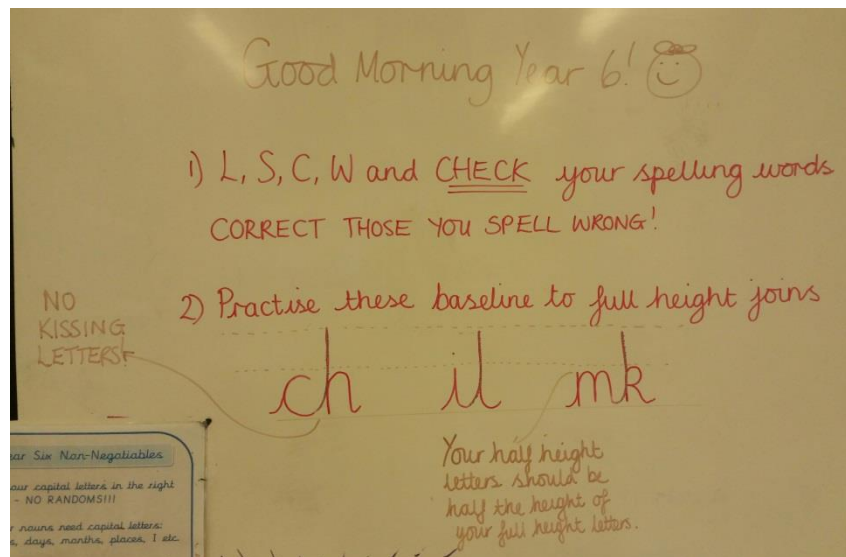 Good Morning Year 6!
1) L, S, C, W and CHECK your spelling words
CORRECT THOSE YOU SPELL WRONG!
2) Practise these baseline to full height joins
NO
KISSING
LETTERS!
ch il mk
Your half height
letters should be
half the height of
your full height letters.
Six Non-Negotiables
capital letters in the right
- NO RANDOMS!!!
nouns need capital letters:
days, months, places, I etc.